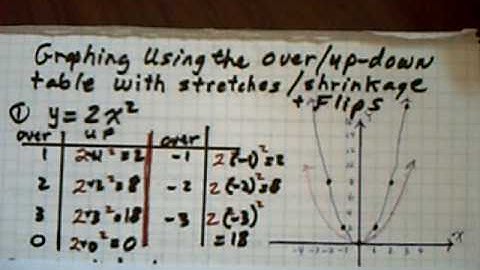 Graphing Using the over/up-down
table with stretches/shrinkage
+ Flips
① y = 2x²
over up over
1 2·1²=2 -1 2(-1)²=2
2 2·2²=8 -2 2(-2)²=8
3 2·3²=18 -3 2(-3)²
0 2·0²=0 =18
-4 -3 -2 -1 1 2 3 4 x